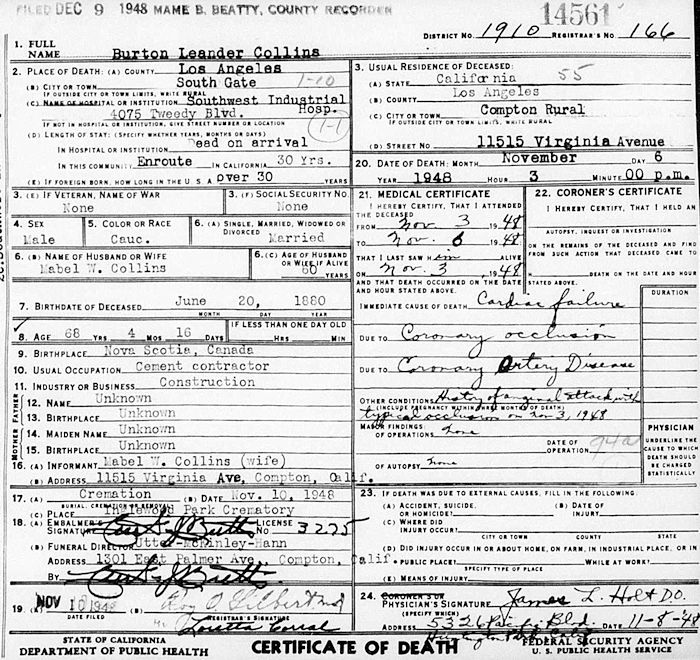 FILED DEC 9 1948 MAME B. BEATTY, COUNTY RECORDER
14561
DISTRICT NO. 1910 REGISTRAR'S NO. 166
1. FULL NAME Burton Leander Collins
2. PLACE OF DEATH: (A) COUNTY Los Angeles
(B) CITY OR TOWN South Gate 1-10
IF OUTSIDE CITY OR TOWN LIMITS, WRITE RURAL
(C) NAME OF HOSPITAL OR INSTITUTION Southwest Industrial Hosp.
4075 Tweedy Blvd. (1-1)
IF NOT IN HOSPITAL OR INSTITUTION, GIVE STREET NUMBER OR LOCATION
(D) LENGTH OF STAY: (SPECIFY WHETHER YEARS, MONTHS OR DAYS)
IN HOSPITAL OR INSTITUTION Dead on arrival
IN THIS COMMUNITY Enroute IN CALIFORNIA 30 Yrs.
(E) IF FOREIGN BORN, HOW LONG IN THE U. S. A. over 30 YEARS
3. USUAL RESIDENCE OF DECEASED:
(A) STATE California 55
(B) COUNTY Los Angeles
(C) CITY OR TOWN Compton Rural
IF OUTSIDE CITY OR TOWN LIMITS, WRITE RURAL
(D) STREET NO. 11515 Virginia Avenue
20. DATE OF DEATH: MONTH November DAY 6
YEAR 1948 HOUR 3 MINUTE 00 p.m.
3. (E) IF VETERAN, NAME OF WAR None
3. (F) SOCIAL SECURITY NO. None
4. SEX Male
5. COLOR OR RACE Cauc.
6. (A) SINGLE, MARRIED, WIDOWED OR DIVORCED Married
6. (B) NAME OF HUSBAND OR WIFE Mabel W. Collins
6. (C) AGE OF HUSBAND OR WIFE IF ALIVE 60 YEARS
7. BIRTHDATE OF DECEASED June 20, 1880
MONTH DAY YEAR
8. AGE 68 YRS 4 MOS 16 DAYS IF LESS THAN ONE DAY OLD HRS MIN
9. BIRTHPLACE Nova Scotia, Canada
10. USUAL OCCUPATION Cement contractor
11. INDUSTRY OR BUSINESS Construction
FATHER
12. NAME Unknown
13. BIRTHPLACE Unknown
MOTHER
14. MAIDEN NAME Unknown
15. BIRTHPLACE Unknown
16. (A) INFORMANT Mabel W. Collins (wife)
(B) ADDRESS 11515 Virginia Ave, Compton, Calif.
17. (A) Cremation (B) DATE Nov. 10, 1948
BURIAL, CREMATION OR REMOVAL
(C) PLACE Inglewood Park Crematory
18. (A) EMBALMER'S SIGNATURE LICENSE NO. 3275
(B) FUNERAL DIRECTOR Utter-McKinley-Hann
ADDRESS 1301 East Palmer Ave., Compton, Calif.
BY
19. (A) NOV 10 1948 (B) Roy O. Gilbert MD
DATE FILED REGISTRAR'S SIGNATURE
Loretta Corral
21. MEDICAL CERTIFICATE
I HEREBY CERTIFY, THAT I ATTENDED THE DECEASED
FROM Nov. 3 1948
TO Nov. 6 1948
THAT I LAST SAW HIM ALIVE
ON Nov. 3 1948
AND THAT DEATH OCCURRED ON THE DATE AND HOUR STATED ABOVE.
22. CORONER'S CERTIFICATE
I HEREBY CERTIFY, THAT I HELD AN
AUTOPSY, INQUEST OR INVESTIGATION
ON THE REMAINS OF THE DECEASED AND FIND FROM SUCH ACTION THAT DECEASED CAME TO
DEATH ON THE DATE AND HOUR STATED ABOVE.
DURATION
IMMEDIATE CAUSE OF DEATH Cardiac failure
DUE TO Coronary occlusion
DUE TO Coronary Artery Disease
OTHER CONDITIONS History of anginal attack with
(INCLUDE PREGNANCY WITHIN THREE MONTHS OF DEATH)
typical occlusion on Nov 3, 1948
MAJOR FINDINGS:
OF OPERATIONS None
DATE OF OPERATION 94a
OF AUTOPSY None
PHYSICIAN
UNDERLINE THE CAUSE TO WHICH DEATH SHOULD BE CHARGED STATISTICALLY
23. IF DEATH WAS DUE TO EXTERNAL CAUSES, FILL IN THE FOLLOWING:
(A) ACCIDENT, SUICIDE, OR HOMICIDE? (B) DATE OF INJURY
(C) WHERE DID INJURY OCCUR?
CITY OR TOWN COUNTY STATE
(D) DID INJURY OCCUR IN OR ABOUT HOME, ON FARM, IN INDUSTRIAL PLACE, OR IN
PUBLIC PLACE? WHILE AT WORK?
SPECIFY TYPE OF PLACE
(E) MEANS OF INJURY
24. CORONER'S OR PHYSICIAN'S SIGNATURE James L. Holt DO.
(SPECIFY WHICH)
ADDRESS 5326 Pacific Blvd. DATE 11-8-48
Huntington Park, Calif
STATE OF CALIFORNIA
DEPARTMENT OF PUBLIC HEALTH
CERTIFICATE OF DEATH
FEDERAL SECURITY AGENCY
U. S. PUBLIC HEALTH SERVICE